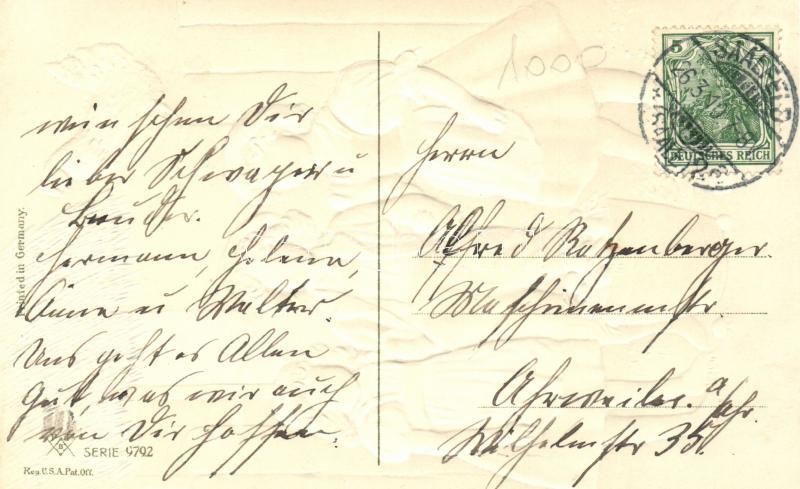 wünschen Dir
lieber Schwager u
Bruder.
Hermann, Helene,
Änne u Walter.
Uns geht es Allen
gut, was wir auch
von Dir hoffen.
Printed in Germany.
SERIE 9792
Reg. U.S.A. Pat. Off.
1000
5
DEUTSCHES REICH
SAALFELD
26.3.10
(SAALE)
Herrn
Alfred Ratzenberger.
Maschinenmstr.
Ahrweiler. a/Ahr.
Wilhelmstr 35.